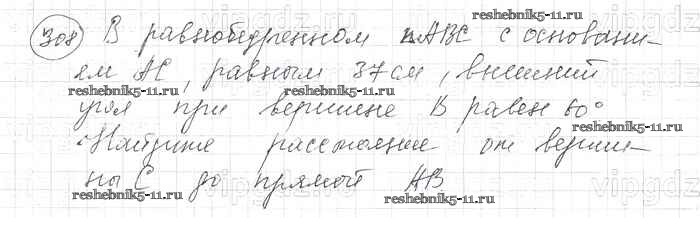 308 В равнобедренном △ABC с основани-
ем AC, равным 37 см, внешний
угол при вершине B равен 60°
Найдите расстояние от верши-
ны C до прямой AB
reshebnik5-11.ru
reshebnik5-11.ru
reshebnik5-11.ru
reshebnik5-11.ru
reshebnik5-11.ru
reshebnik5-11.ru
vipgdz